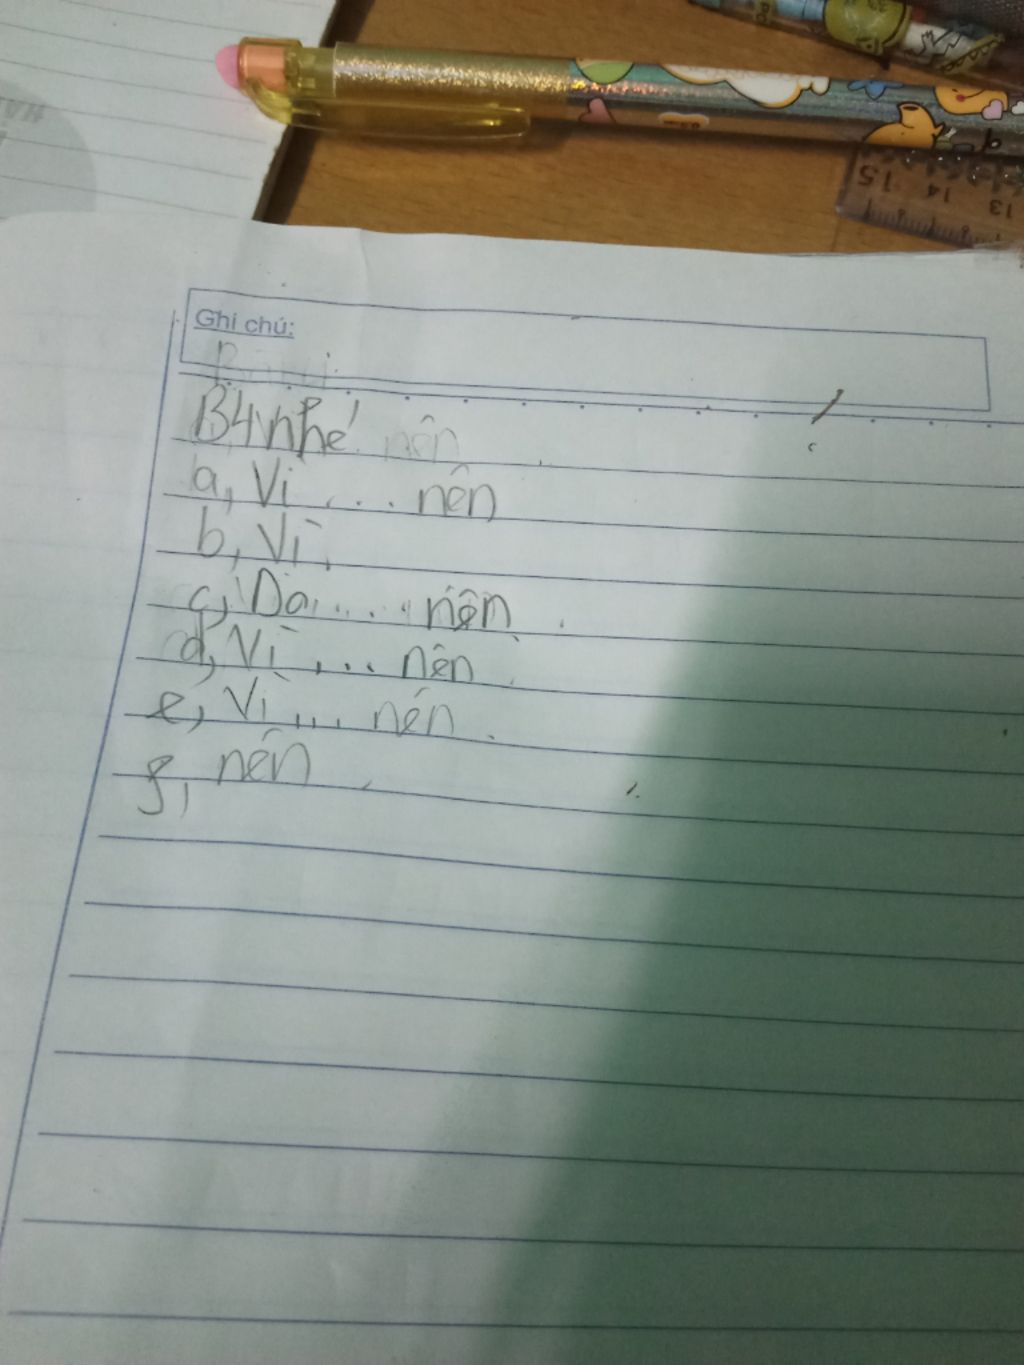 15 14 13
Ghi chú:
B4 nhé nên
a, Vì .... nên
b, Vì.
c, Do.... nên.
d, Vì .... nên.
e, Vì.... nên.
g, nên.